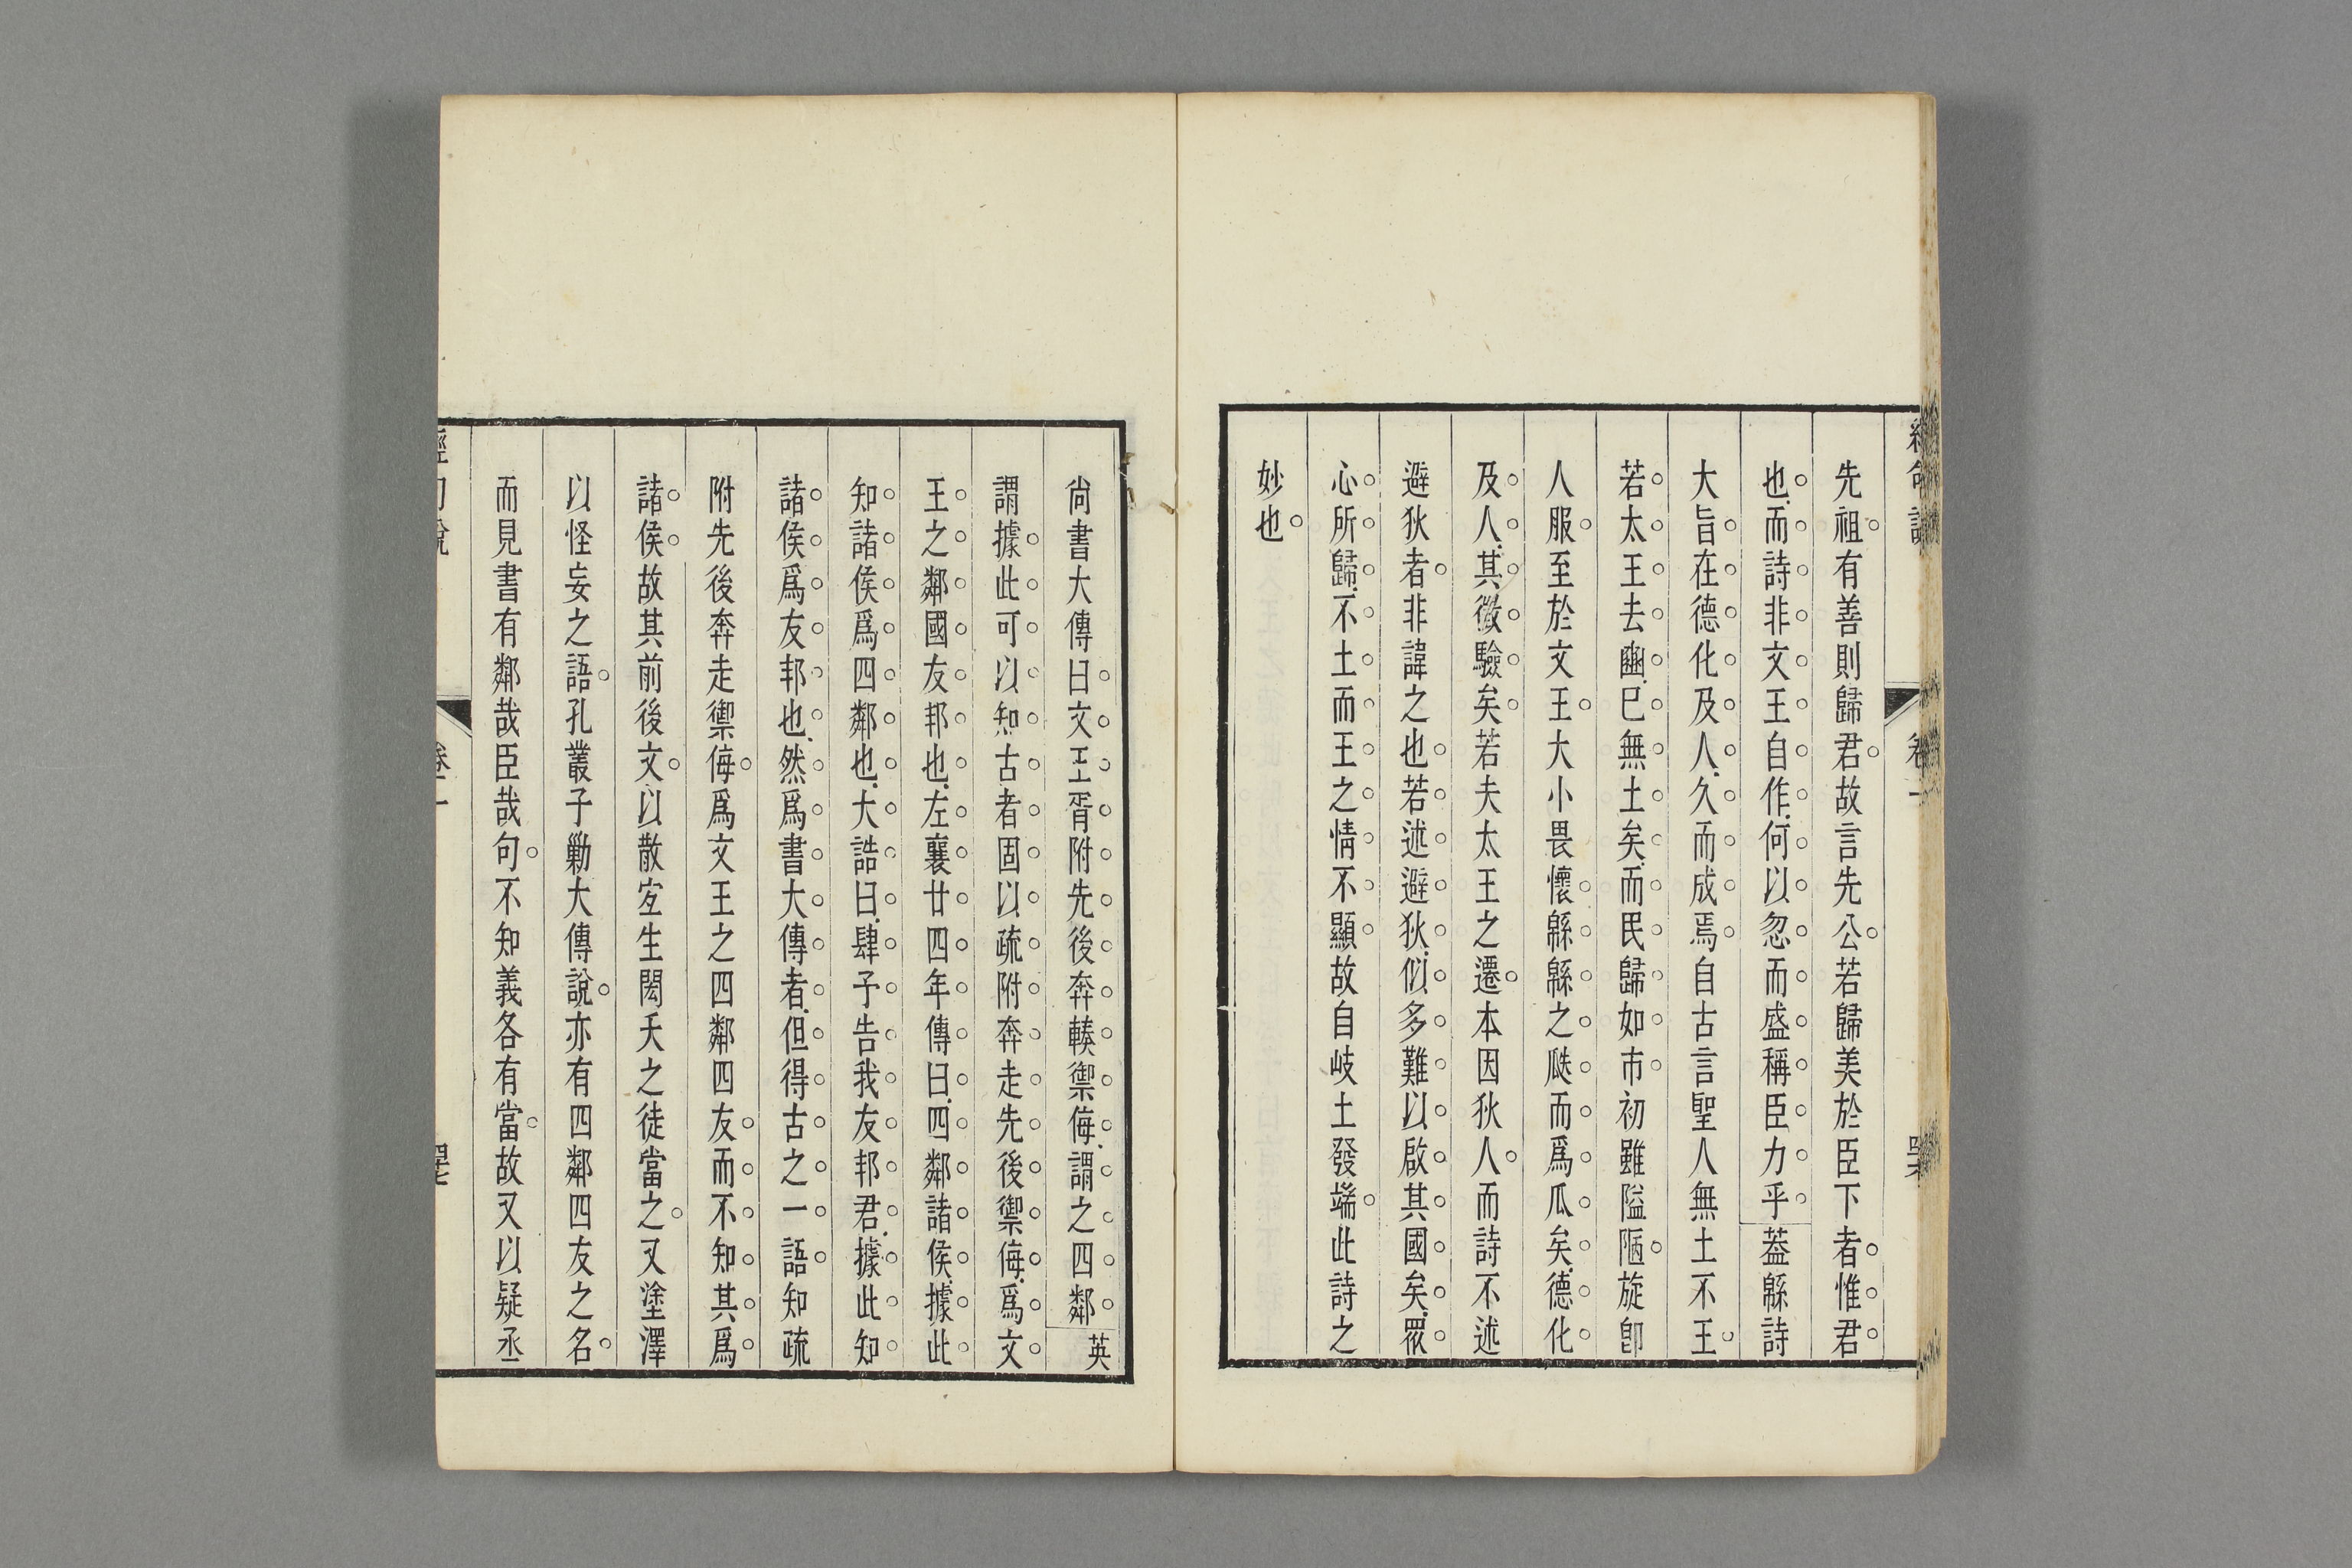 先祖有善則歸君故言先公若歸美於臣下者惟君
也而詩非文王自作何以忽而盛稱臣力乎葢緜詩
大旨在德化及人久而成焉自古言聖人無土不王
若太王去豳巳無土矣而民歸如市初雖隘陋旋卽
人服至於文王大小畏懷緜緜之瓞而爲瓜矣德化
及人其徵驗矣若夫太王之遷本因狄人而詩不述
避狄者非諱之也若述避狄似多難以啟其國矣眾
心所歸不土而王之情不顯故自岐土發端此詩之
妙也
尙書大傳曰文王胥附先後奔輳禦侮謂之四鄰英
謂據此可以知古者固以疏附奔走先後禦侮爲文
王之鄰國友邦也左襄廿四年傳曰四鄰諸侯據此
知諸侯爲四鄰也大誥曰肆予告我友邦君據此知
諸侯爲友邦也然爲書大傳者但得古之一語知疏
附先後奔走禦侮爲文王之四鄰四友而不知其爲
諸侯故其前後文以散宐生閎夭之徒當之又塗澤
以怪妄之語孔叢子勦大傳說亦有四鄰四友之名
而見書有鄰哉臣哉句不知義各有當故又以疑丞